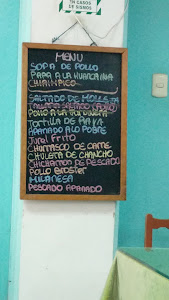 EN CASOS
DE SISMOS
MENU
SOPA DE POLLO
PAPA A LA HUANCAINA
SALTADO DE
POLLO A LA
TORTILLA DE RAYA
APANADO A LO POBRE
JUREL FRITO
CHURRASCO DE CARNE
CHULETA DE CHANCHO
CHICHARRON DE PESCADO
POLLO BROSTER
MILANESA
PESCADO APANADO